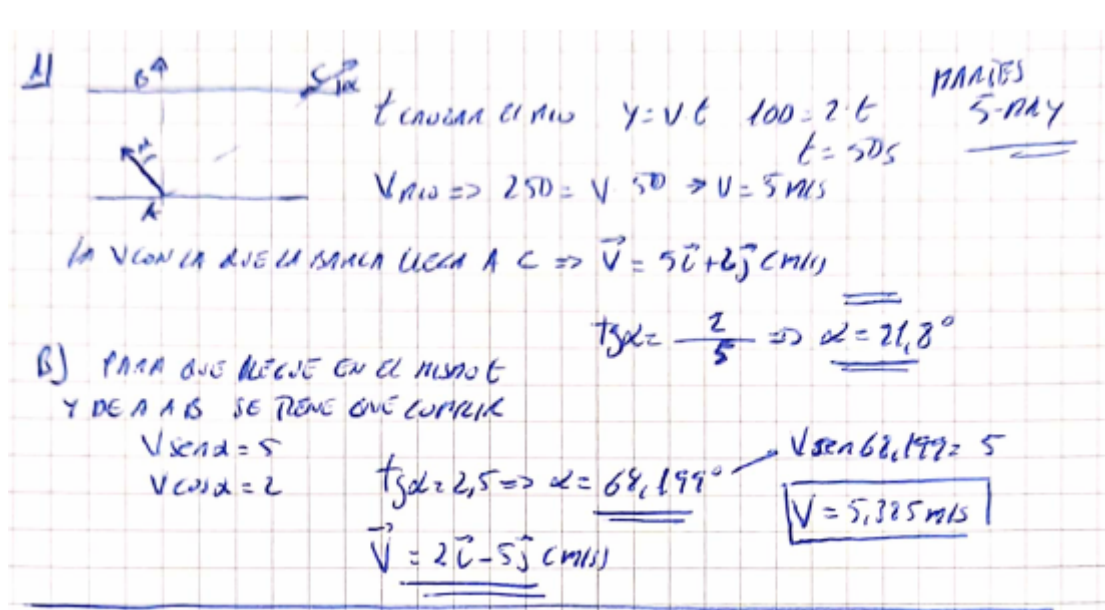 1)
B
C α
α
A
t CRUZAR EL RIO Y = V t 100 = 2·t
MARTES
5-MAY
t = 50s
V RIO => 250 = V 50 => V = 5 m/s
LA V CON LA QUE LA BARCA LLEGA A C => V⃗ = 5i⃗+2j⃗ (m/s)
tgα = 2/5 => α = 21,8°
B) PARA QUE LLEGUE EN EL MISMO t
Y DE A A B SE TIENE QUE CUMPLIR
V senα = 5
V cosα = 2
tgα = 2,5 => α = 68,199°
V sen 68,199 = 5
V = 5,385 m/s
V⃗ = 2i⃗ - 5j⃗ (m/s)